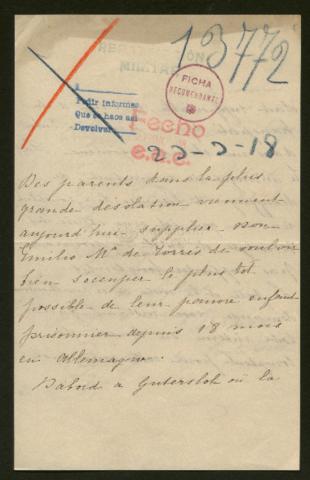 13772
MILITAR
FICHA
RECOMENDANTE
Pedir informes
Que se hace así
Devolver
Fecho
e.a.e.
23-2-18
Des parents dans la plus
grande désolation viennent
aujourd'hui supplier Don
Emilio Mª de Torres de vouloir
bien s'occuper le plus tôt
possible de leur pauvre enfant
prisonnier depuis 18 mois
en Allemagne.
D'abord a Gutersloh où la